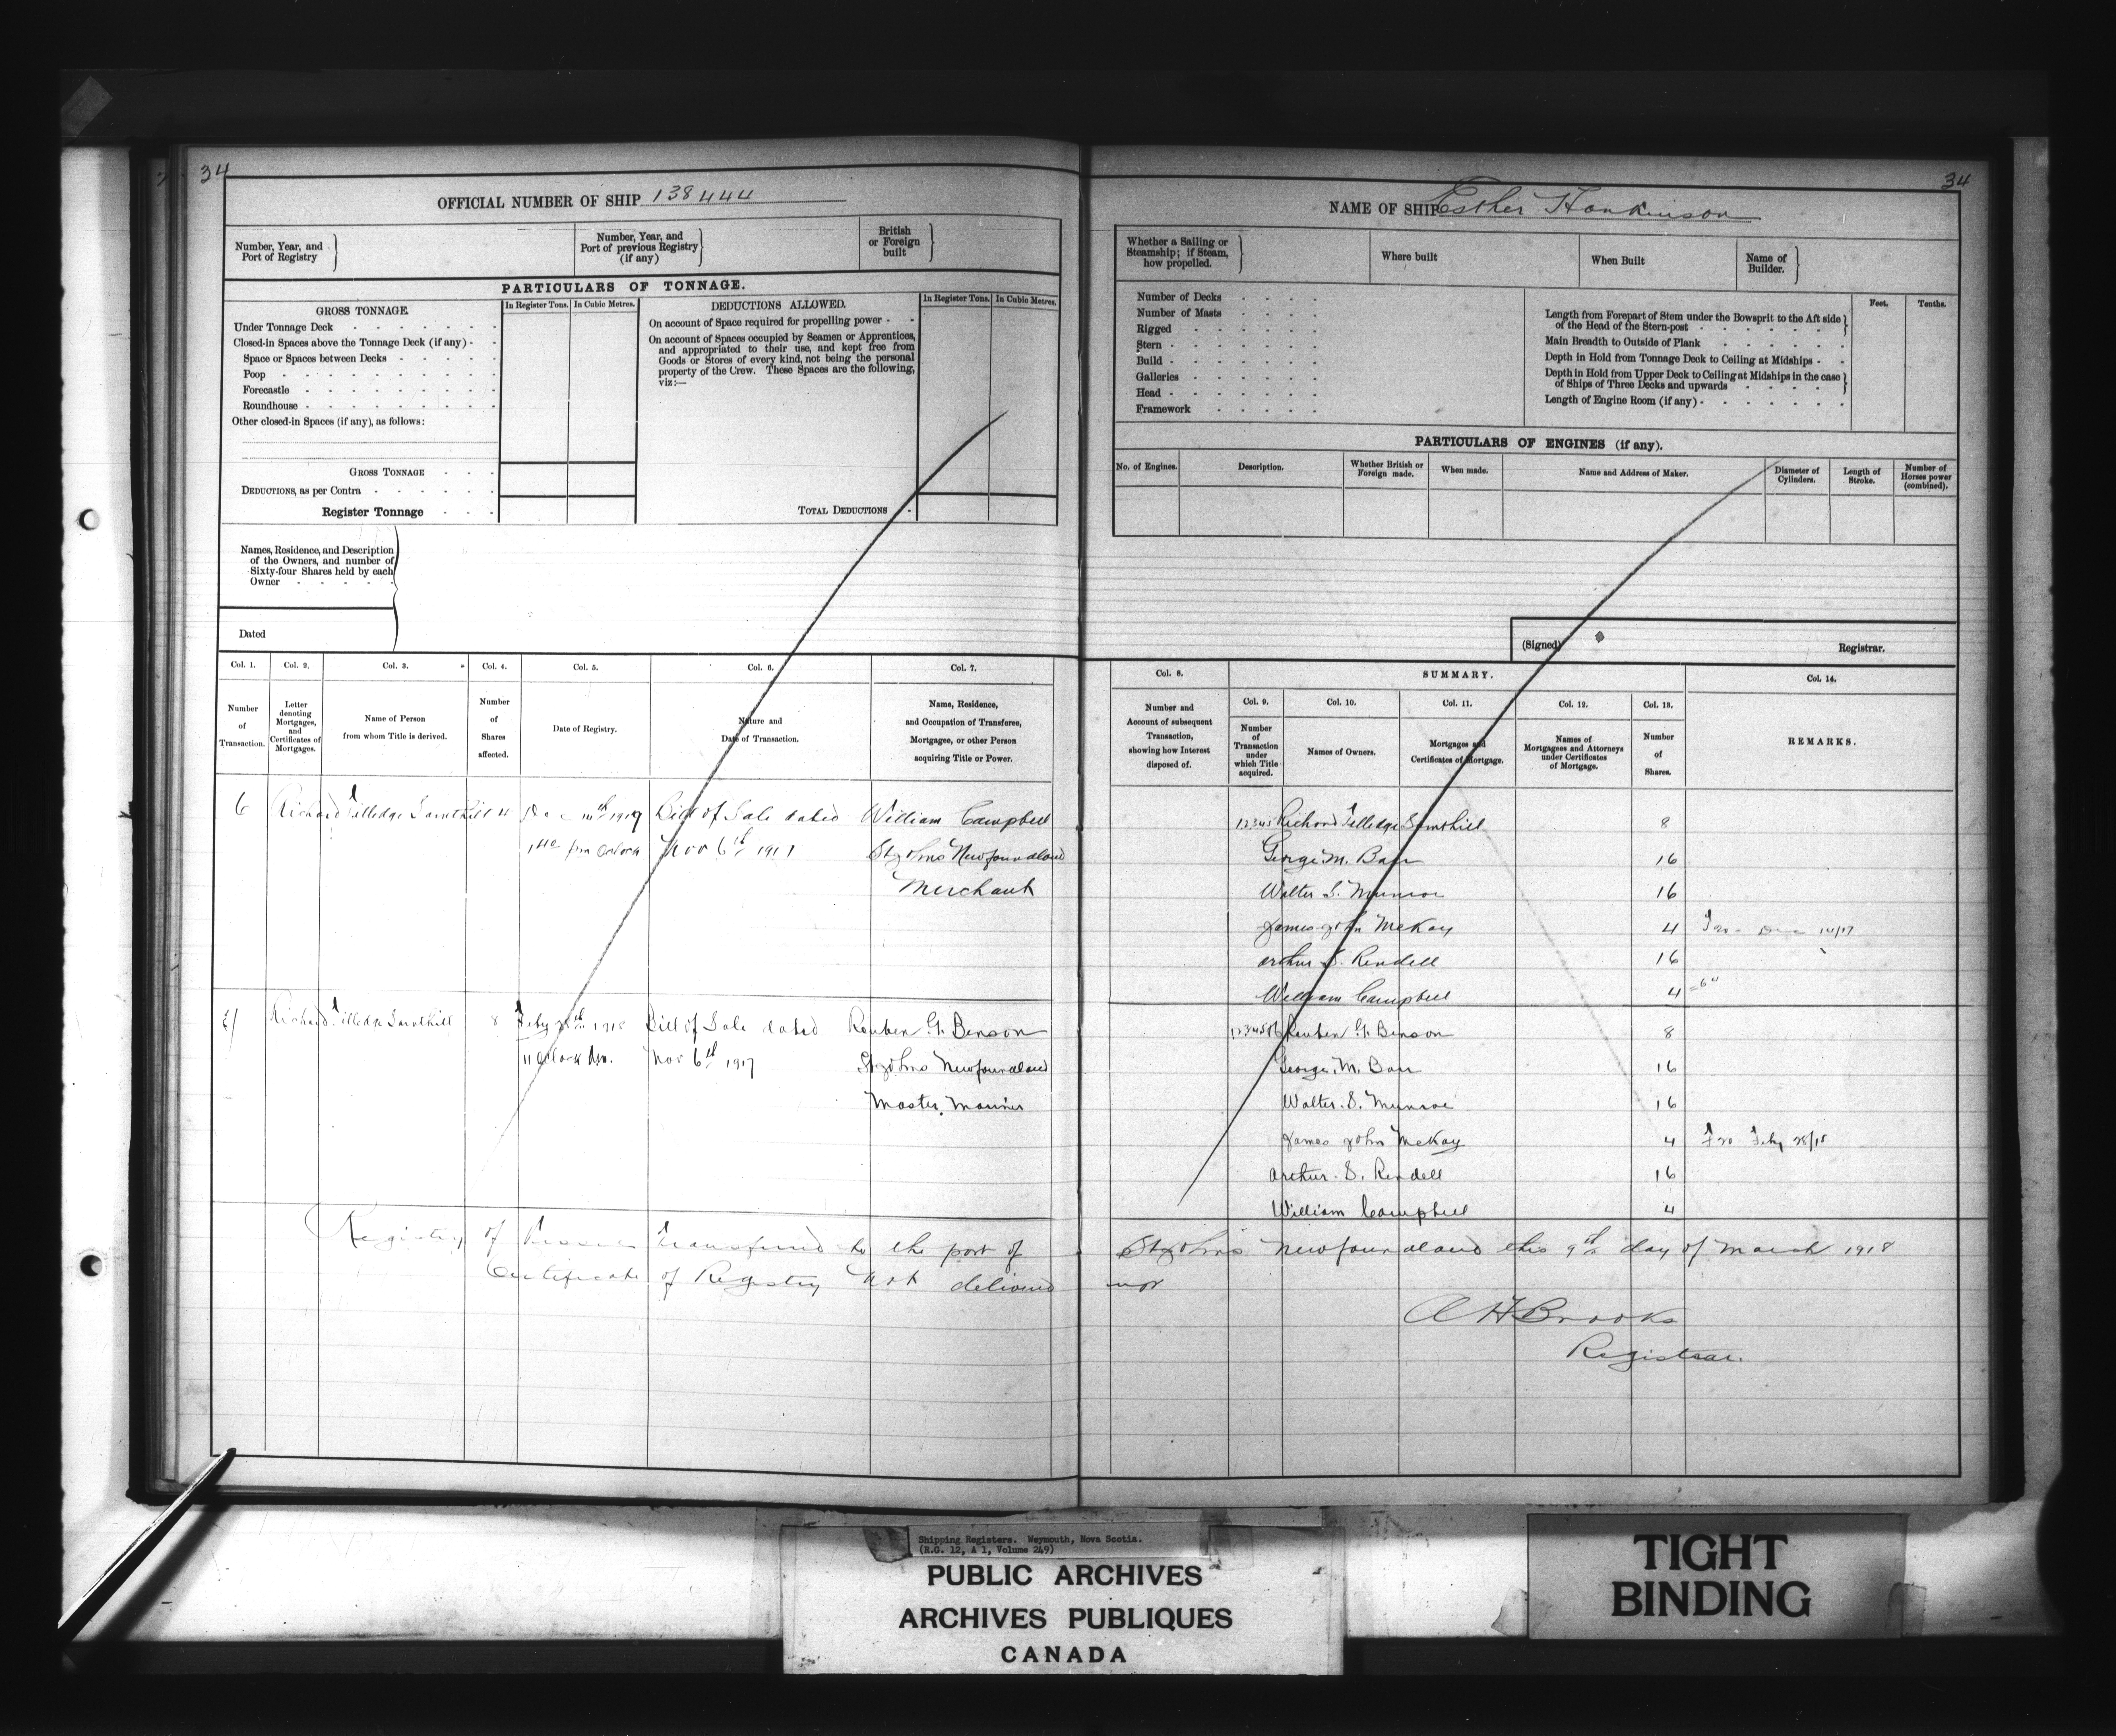 34
OFFICIAL NUMBER OF SHIP 138444
Number, Year, and
Port of Registry
Number, Year, and
Port of previous Registry
(if any)
British
or Foreign
built
PARTICULARS OF TONNAGE.
GROSS TONNAGE.
In Register Tons.
In Cubic Metres.
DEDUCTIONS ALLOWED.
In Register Tons.
In Cubic Metres.
Under Tonnage Deck
Closed-in Spaces above the Tonnage Deck (if any)
Space or Spaces between Decks
Poop
Forecastle
Roundhouse
Other closed-in Spaces (if any), as follows:
GROSS TONNAGE
DEDUCTIONS, as per Contra
Register Tonnage
On account of Space required for propelling power
On account of Spaces occupied by Seamen or Apprentices,
and appropriated to their use, and kept free from
Goods or Stores of every kind, not being the personal
property of the Crew. These Spaces are the following,
viz:—
TOTAL DEDUCTIONS
Names, Residence, and Description
of the Owners, and number of
Sixty-four Shares held by each
Owner
Dated
Col. 1.
Number
of
Transaction.
Col. 2.
Letter
denoting
Mortgages,
and
Certificates of
Mortgages.
Col. 3.
Name of Person
from whom Title is derived.
Col. 4.
Number
of
Shares
affected.
Col. 5.
Date of Registry.
Col. 6.
Nature and
Date of Transaction.
Col. 7.
Name, Residence,
and Occupation of Transferee,
Mortgagee, or other Person
acquiring Title or Power.
6 Richard 4 Bill of Sale dated William Campbell
Nov 6th St Johns Newfoundland
Merchant
Richard 8 Feby 1918 Bill of Sale dated Reuben G. Benson
11 Oclock Am. Nov 6th 1917 St Johns Newfoundland
Master Mariner
Registry of Vessel transferred to the port of
Certificate of Registry not delivered
34
NAME OF SHIP Esther Hankinson
Whether a Sailing or
Steamship; if Steam,
how propelled.
Where built
When Built
Name of
Builder.
Number of Decks
Number of Masts
Rigged
Stern
Build
Galleries
Head
Framework
Feet.
Tenths.
Length from Forepart of Stem under the Bowsprit to the Aft side
of the Head of the Stern-post
Main Breadth to Outside of Plank
Depth in Hold from Tonnage Deck to Ceiling at Midships
Depth in Hold from Upper Deck to Ceiling at Midships in the case
of Ships of Three Decks and upwards
Length of Engine Room (if any)
PARTICULARS OF ENGINES (if any).
No. of Engines.
Description.
Whether British or
Foreign made.
When made.
Name and Address of Maker.
Diameter of
Cylinders.
Length of
Stroke.
Number of
Horses power
(combined).
(Signed) Registrar.
Col. 8.
Number and
Account of subsequent
Transaction,
showing how Interest
disposed of.
SUMMARY.
Col. 9.
Number
of
Transaction
under
which Title
acquired.
Col. 10.
Names of Owners.
Col. 11.
Mortgages and
Certificates of Mortgage.
Col. 12.
Names of
Mortgagees and Attorneys
under Certificates
of Mortgage.
Col. 13.
Number
of
Shares.
Col. 14.
REMARKS.
12345 Richard 8
George M. Barr 16
Walter S. Munroe 16
James John McKay 4
Arthur S. Rendell 16
William Campbell 4
Reuben G. Benson 8
George M. Barr 16
Walter S. Munroe 16
James John McKay 4
Arthur S. Rendell 16
William Campbell 4
St Johns Newfoundland this 9th day of March 1918
up
A H Brooks
Registrar.
Shipping Registers. Weymouth, Nova Scotia.
(R.G. 12, A 1, Volume 249)
PUBLIC ARCHIVES
ARCHIVES PUBLIQUES
CANADA
TIGHT
BINDING